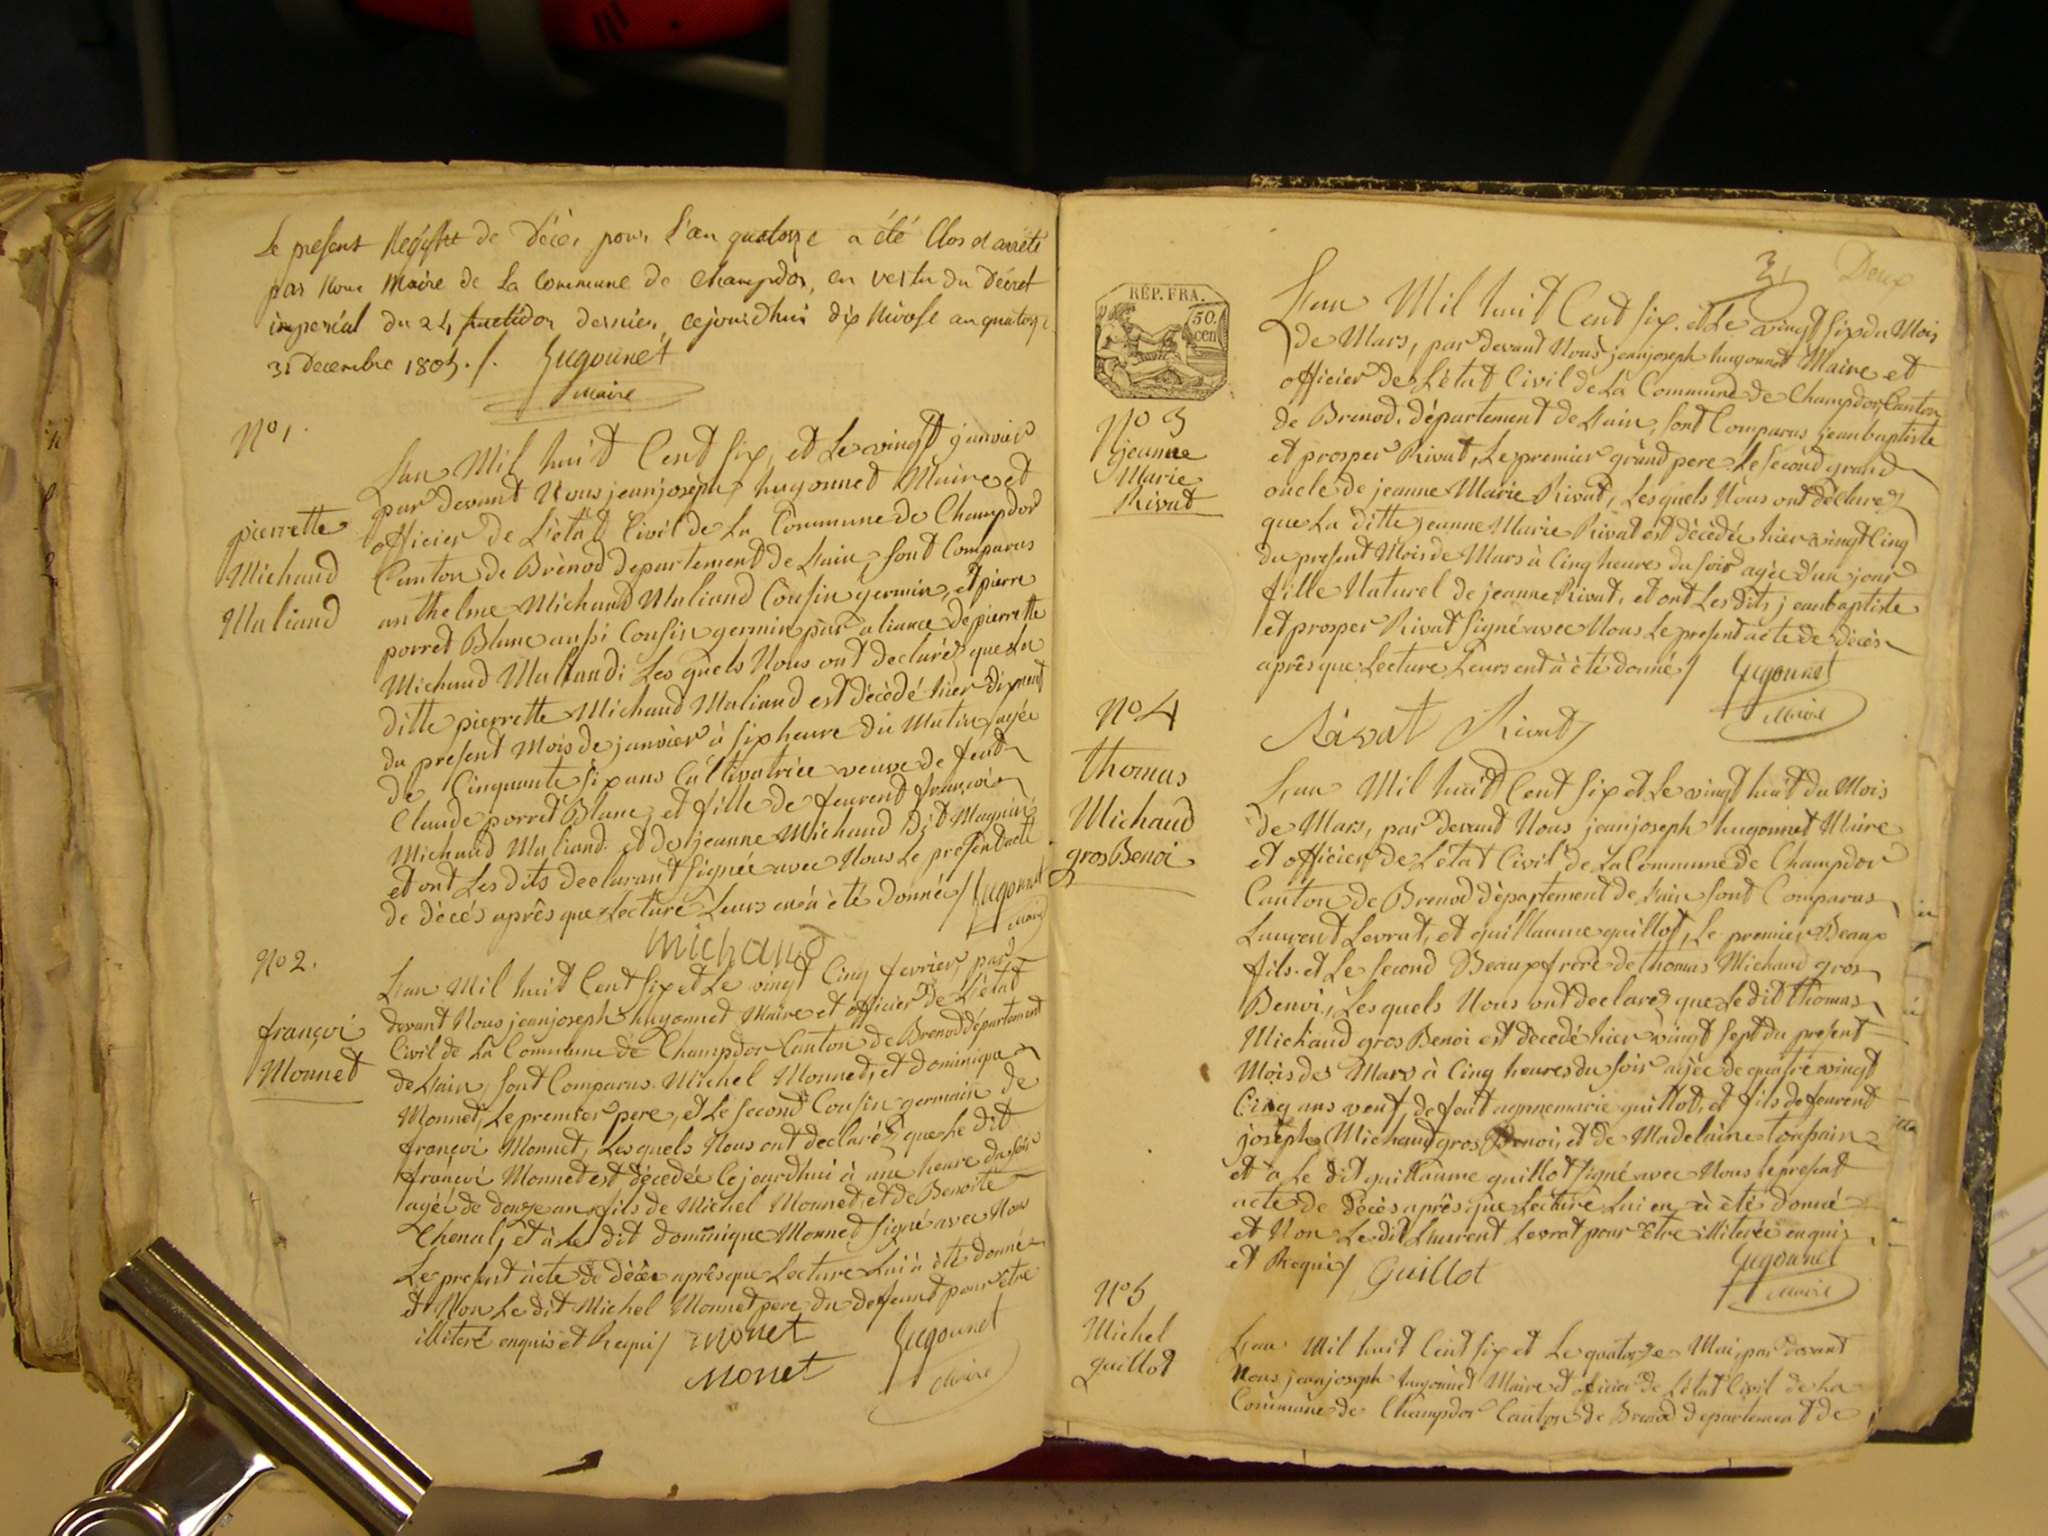 Le present Registre de Décès pour L'an quatorze a été Clos et arrêté
par Nous Maire de La Commune de Champdor, en vertu du Décret
imperial du 24 fructidor dernier, cejourdhui dix Nivose an quatorze
31 Decembre 1805 ./. Hugonnet
Maire
N° 1.
pierrette
Michaud
Maliand
Lan Mil huit Cent Six, et Le vingt janvier
par devant Nous jean joseph hugonnet Maire et
officier de L'état Civil de La Commune de Champdor
Canton de Brénod departement de Lain, Sont Comparus
anthelme Michaud Maliand Cousin germin, et pierre
porret Blanc aussi Cousin germin par aliance de pierrette
Michaud Maliand; Les quels Nous ont declaréz que La
ditte pierrette Michaud Maliand est décédé hier dixneuf
du present Mois de janvier à Six heure du Matin, agée
de Cinquante Six ans Cultivatrice veuve de feut
Claude porret Blanc, et fille de feurent françoi
Michaud Maliand et de jeanne Michaud dit Magnin
et ont Les dits declarant Signée avec Nous Le present acte
de décés aprês que Lecture Leurs en à èté donné / Hugonnet
Maire
Michaud
N° 2.
françoi
Monnet
Lan Mil huit Cent Six et Le vingt Cinq fevrier, par
devant Nous jean joseph hugonnet Maire et officier de L'état
Civil de La Commune de Champdor Canton de Brenod département
de Lain, Sont Comparus Michel Monnet, et dominique
Monnet, Le premier pere, et Le Second Cousin germain de
françoi Monnet, Les quels Nous ont declaréz que Le dit
françoi Monnet est décedée Cejourdhui à une heure du Soir
agéé de douze an, fils de Michel Monnet, et de Benoite
Chenal, et à Le dit dominique Monnet Signé avec Nous
Le present acte de décés aprês que Lecture Lui à èté donné
et Non Le dit Michel Monnet pere du defeunt pour être
illiteré enquis et Requi / monet Hugonnet
Monet Maire
3 Deux
RÉP. FRA.
50
cen
N° 3
jeanne
Marie
Rivat
Lan Mil huit Cent Six. et Le vingt Six du Mois
de Mars, par devant Nous jean joseph hugonnet Maire et
officier de L'état Civil de La Commune de Champdor Canton
de Brenod, département de Lain, Sont Comparus jean baptiste
et prosper Rivat, Le premier grand pere Le Second grand
oncle de jeanne Marie Rivat, Les quels Nous ont déclarez
que La ditte jeanne Marie Rivat est décedée hier vingt Cinq
du present Mois de Mars à Cinq heures du Soir agée d'un jour
fille Naturel de jeanne Rivat, et ont Les dits jean baptiste
et prosper Rivat Signé avec Nous Le present acte de décès
aprês que Lecture Leurs ent à èté donné / Hugonnet
Rivat Rivat Maire
N° 4
thomas
Michaud
gros Benoi
Lan Mil huit Cent Six et Le vingt huit du Mois
de Mars, par devant Nous jean joseph hugonnet Maire
et officier de L'état Civil de La Commune de Champdor
Canton de Brenod département de Lain Sont Comparus
Laurent Levrat, et guillaume guillot, Le premier Beaux
fils et Le Second Beaux frere de thomas Michaud gros
Benoi, Les quels Nous ont declarez que Le dit thomas
Michaud gros Benoi est décedé hier vingt Sept du present
Mois de Mars à Cinq heures du Soir agée de quatre vingt
Cinq ans veuf, de feut annemarie guillot, et fils de feurent
joseph Michaud gros Benoi, et de Madelaine toussain
et à Le dit guillaume guillot Signé avec Nous Le present
acte de Décès aprês que Lecture Lui en à èté donné
et Non Le dit Laurent Levrat pour être illiterée enquis
et Requi / Guillot Hugonnet
Maire
N° 5
Michel
guillot
Lan Mil huit Cent Six et Le quatorze Mai, par devant
Nous jean joseph hugonnet Maire et oficier de L'état Civil de La
Commune de Champdor Canton de Brenod departement de